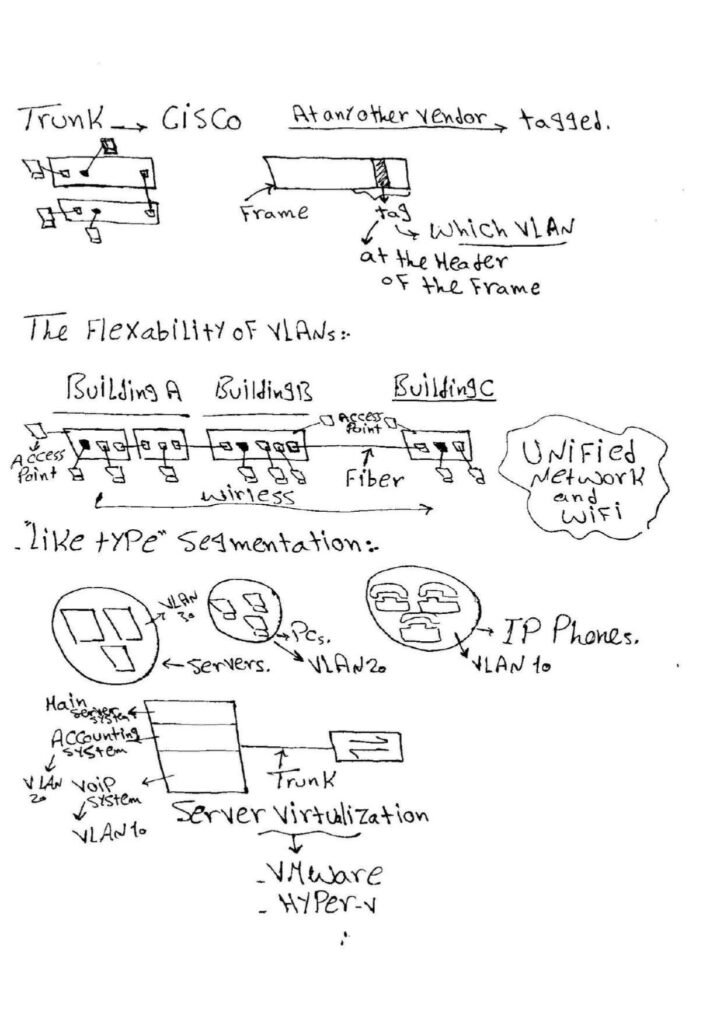 Trunk → Cisco
At any other vendor → tagged.
Frame
tag
Which VLAN
at the Header
of the Frame
The Flexability of VLANs:-
Building A
Building B
Building C
Access
Point
Access
Point
Fiber
wirless
UNiFied
Network
and
WiFi
- "Like type" Segmentation:-
VLAN
30
Servers.
PCs.
VLAN 20
IP Phones.
VLAN 10
Main
server
system
Accounting
system
VLAN
20
VoiP
system
VLAN 10
Trunk
Server Virtulization
- VMware
- HYPer-v